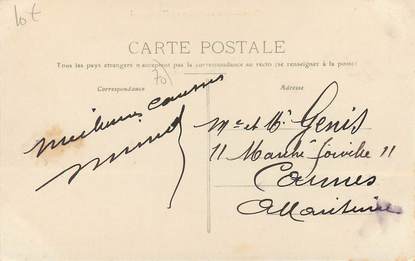 10€
CARTE POSTALE
Tous les pays étrangers n'acceptent pas la correspondance au recto (se renseigner à la poste)
70
Correspondance
Adresse
Meilleurs
Mr et Me Genis
11 Marché Forville 11
Cannes
A Maritime